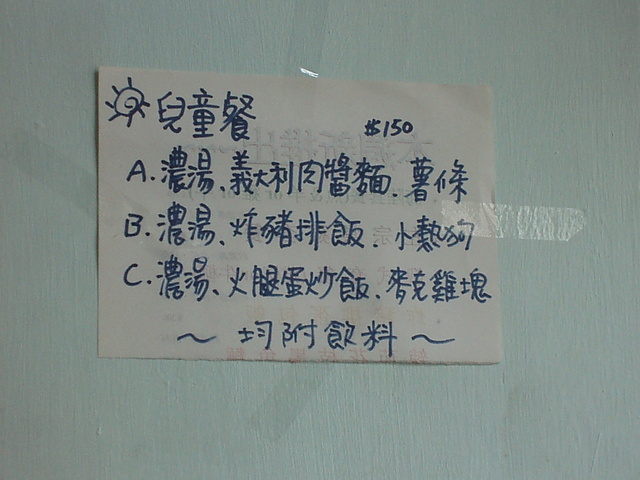 兒童餐 $150
A.濃湯、義大利肉醬麵、薯條
B.濃湯、炸豬排飯、小熱狗
C.濃湯、火腿蛋炒飯、麥克雞塊
~均附飲料~